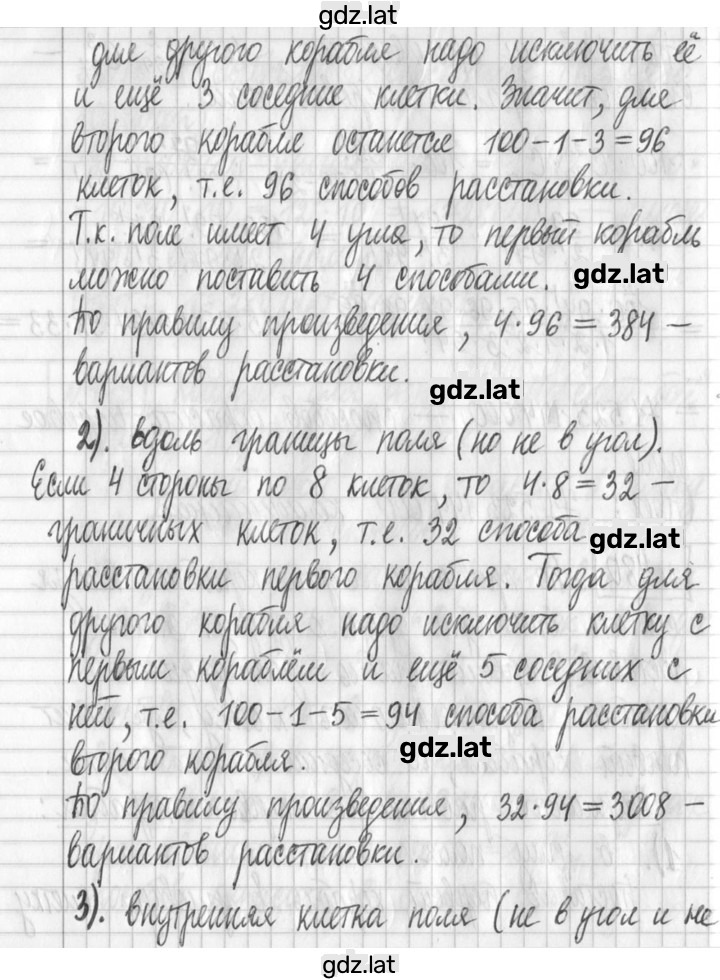 gdz.lat
для другого корабля надо исключить её
и ещё 3 соседние клетки. Значит, для
второго корабля останется 100-1-3=96
клеток, т.е. 96 способов расстановки.
Т.к. поле имеет 4 угла, то первый корабль
можно поставить 4 способами. gdz.lat
По правилу произведения, 4·96=384 -
вариантов расстановки. gdz.lat
2). вдоль границы поля (но не в угол).
Если 4 стороны по 8 клеток, то 4·8=32 -
граничных клеток, т.е. 32 способа gdz.lat
расстановки первого корабля. Тогда для
другого корабля надо исключить клетку с
первым кораблём и ещё 5 соседних с
ней, т.е. 100-1-5=94 способа расстановки
второго корабля. gdz.lat
По правилу произведения, 32·94=3008 -
вариантов расстановки.
3). внутренняя клетка поля (не в угол и не
gdz.lat